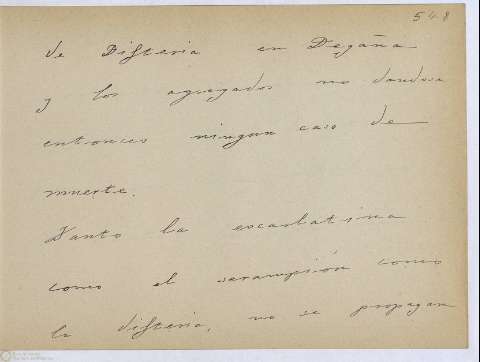 548
de Difteria en Degaña
y los agregados no dandose
entonces ningun caso de
muerte.
Tanto la escarlatina
como el sarampión como
la difteria, no se propagan